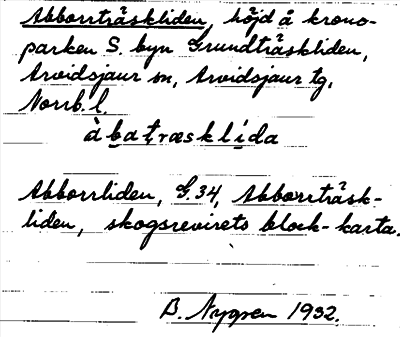 Abborrträskliden, höjd å krono-
parken S. byn Grundträskliden,
Arvidsjaur sn, Arvidsjaur tg,
Norrb. l.
àbatræsklida
Abborrliden, G.34, Abborrträsk-
liden, skogsrevirets block-karta.
B. Nygren 1932.